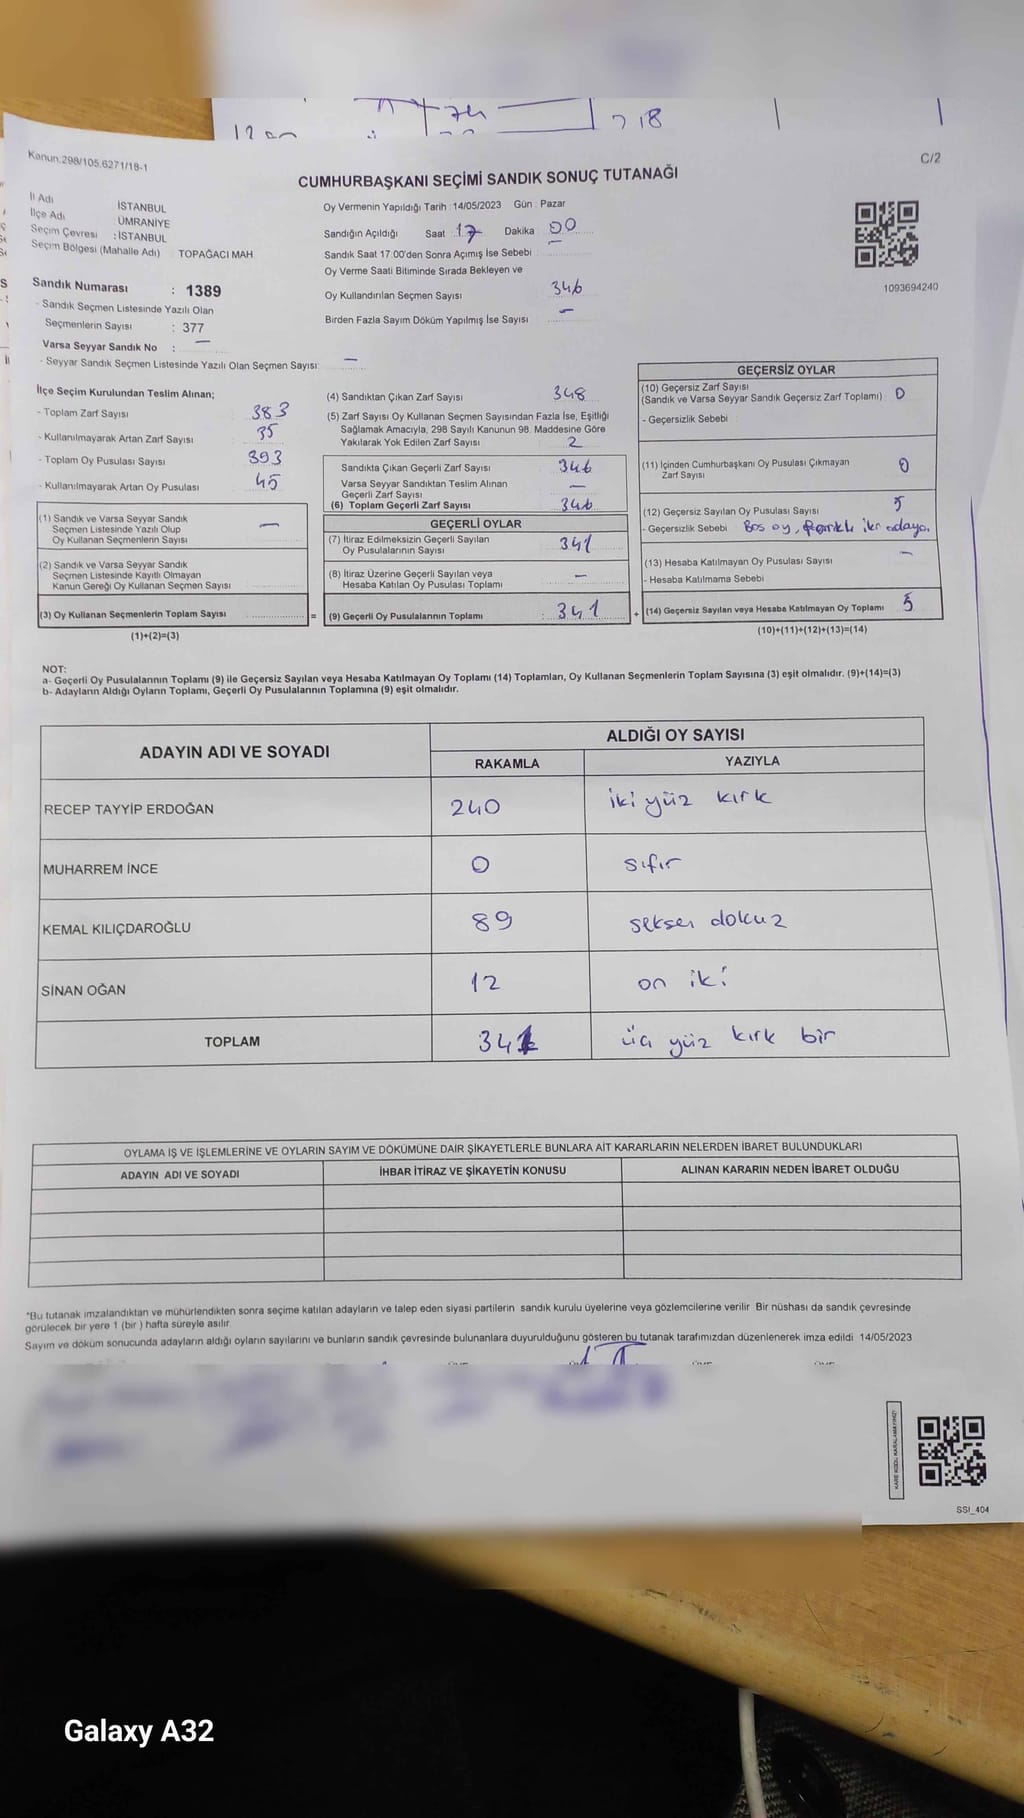 Kanun.298/105.6271/18-1
C/2
CUMHURBAŞKANI SEÇİMİ SANDIK SONUÇ TUTANAĞI
İl Adı İSTANBUL
İlçe Adı ÜMRANİYE
Seçim Çevresi : İSTANBUL
Seçim Bölgesi (Mahalle Adı) TOPAĞACI MAH
Sandık Numarası : 1389
- Sandık Seçmen Listesinde Yazılı Olan
Seçmenlerin Sayısı : 377
Varsa Seyyar Sandık No : —
- Seyyar Sandık Seçmen Listesinde Yazılı Olan Seçmen Sayısı: —
Oy Vermenin Yapıldığı Tarih : 14/05/2023 Gün : Pazar
Sandığın Açıldığı Saat 17 Dakika 00
Sandık Saat 17.00'den Sonra Açımış İse Sebebi —
Oy Verme Saati Bitiminde Sırada Bekleyen ve
Oy Kullandırılan Seçmen Sayısı 346
Birden Fazla Sayım Döküm Yapılmış İse Sayısı —
1093694240
İlçe Seçim Kurulundan Teslim Alınan;
- Toplam Zarf Sayısı 383
- Kullanılmayarak Artan Zarf Sayısı 35
- Toplam Oy Pusulası Sayısı 393
- Kullanılmayarak Artan Oy Pusulası 45
(1) Sandık ve Varsa Seyyar Sandık
Seçmen Listesinde Yazılı Olup
Oy Kullanan Seçmenlerin Sayısı —
(2) Sandık ve Varsa Seyyar Sandık
Seçmen Listesinde Kayıtlı Olmayan
Kanun Gereği Oy Kullanan Seçmen Sayısı
(3) Oy Kullanan Seçmenlerin Toplam Sayısı =
(1)+(2)=(3)
(4) Sandıktan Çıkan Zarf Sayısı 348
(5) Zarf Sayısı Oy Kullanan Seçmen Sayısından Fazla İse, Eşitliği
Sağlamak Amacıyla, 298 Sayılı Kanunun 98. Maddesine Göre
Yakılarak Yok Edilen Zarf Sayısı 2
Sandıkta Çıkan Geçerli Zarf Sayısı 346
Varsa Seyyar Sandıktan Teslim Alınan
Geçerli Zarf Sayısı —
(6) Toplam Geçerli Zarf Sayısı 346
GEÇERLİ OYLAR
(7) İtiraz Edilmeksizin Geçerli Sayılan
Oy Pusulalarının Sayısı 341
(8) İtiraz Üzerine Geçerli Sayılan veya
Hesaba Katılan Oy Pusulası Toplamı —
(9) Geçerli Oy Pusulalarının Toplamı : 341 +
GEÇERSİZ OYLAR
(10) Geçersiz Zarf Sayısı
(Sandık ve Varsa Seyyar Sandık Geçersiz Zarf Toplamı) 0
- Geçersizlik Sebebi :
(11) İçinden Cumhurbaşkanı Oy Pusulası Çıkmayan
Zarf Sayısı 0
(12) Geçersiz Sayılan Oy Pusulası Sayısı 5
- Geçersizlik Sebebi Boş oy, iki adaya.
(13) Hesaba Katılmayan Oy Pusulası Sayısı —
- Hesaba Katılmama Sebebi
(14) Geçersiz Sayılan veya Hesaba Katılmayan Oy Toplamı 5
(10)+(11)+(12)+(13)=(14)
NOT:
a- Geçerli Oy Pusulalarının Toplamı (9) ile Geçersiz Sayılan veya Hesaba Katılmayan Oy Toplamı (14) Toplamları, Oy Kullanan Seçmenlerin Toplam Sayısına (3) eşit olmalıdır. (9)+(14)=(3)
b- Adayların Aldığı Oyların Toplamı, Geçerli Oy Pusulalarının Toplamına (9) eşit olmalıdır.
ADAYIN ADI VE SOYADI ALDIĞI OY SAYISI
RAKAMLA YAZIYLA
RECEP TAYYİP ERDOĞAN 240 iki yüz kırk
MUHARREM İNCE 0 sıfır
KEMAL KILIÇDAROĞLU 89 seksen dokuz
SİNAN OĞAN 12 on iki
TOPLAM 341 üç yüz kırk bir
OYLAMA İŞ VE İŞLEMLERİNE VE OYLARIN SAYIM VE DÖKÜMÜNE DAİR ŞİKAYETLERLE BUNLARA AİT KARARLARIN NELERDEN İBARET BULUNDUKLARI
ADAYIN ADI VE SOYADI İHBAR İTİRAZ VE ŞİKAYETİN KONUSU ALINAN KARARIN NEDEN İBARET OLDUĞU
*Bu tutanak imzalandıktan ve mühürlendikten sonra seçime katılan adayların ve talep eden siyasi partilerin sandık kurulu üyelerine veya gözlemcilerine verilir Bir nüshası da sandık çevresinde
görülecek bir yere 1 (bir ) hafta süreyle asılır.
Sayım ve döküm sonucunda adayların aldığı oyların sayılarını ve bunların sandık çevresinde bulunanlara duyurulduğunu gösteren bu tutanak tarafımızdan düzenlenerek imza edildi 14/05/2023
KARE KODU KARALAMAYINIZ!
SSI_404
Galaxy A32